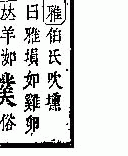 雅伯氏吹壎
曰雅壎如雞卵
羊如俗